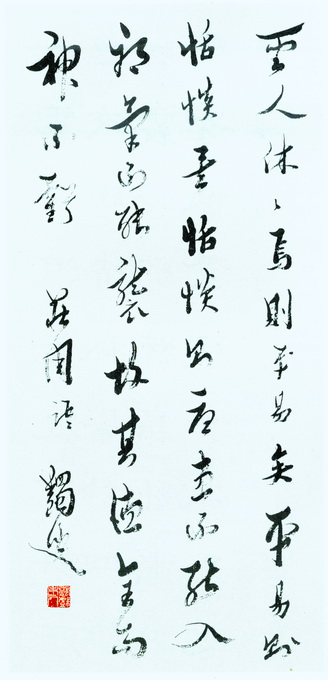 聖人休〻焉則平易矣平易則
恬惔矣恬惔則憂患不能入
邪氣不能襲故其德全而
神不虧 莊周語 蠲叟